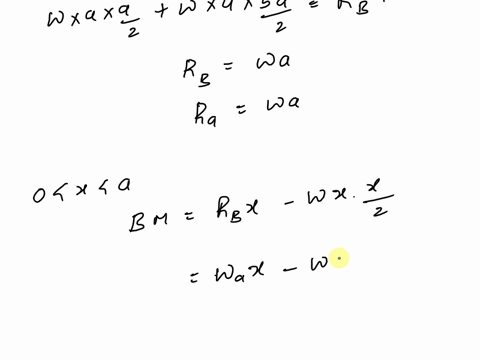 w x a x a/2 + w x a x 3a/2 = RB
RB = wa
Ra = wa
0 < x < a
BM = RBx - wx . x/2
= wax - w